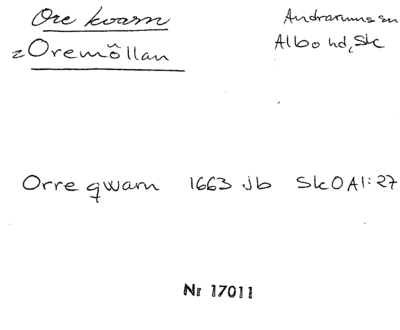 Ore kvarn
z Oremöllan
Andrarums sn
Albo hd, Sk
Orre qwarn 1663 jb Sk O Al:27
Nr 17011